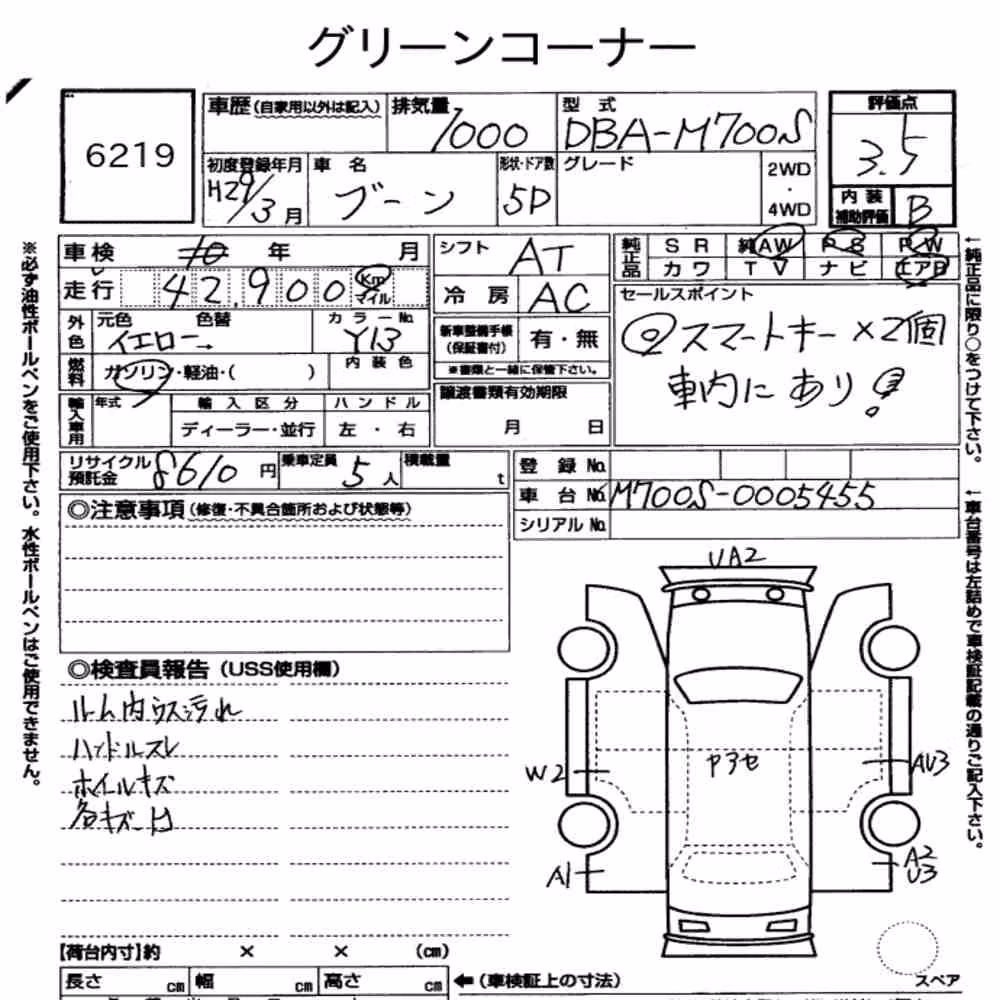 グリーンコーナー
6219
車歴(自家用以外は記入)
排気量
1000
型 式
DBA-M700S
評価点
3.5
初度登録年月
H29/3月
車 名
ブーン
形状・ドア数
5D
グレード
2WD
・
4WD
内 装
補助評価
B
車検 10 年 月
シフト AT
純正品
SR 純AW PS PW
カワ TV ナビ エアB
走行 42,900 Km
マイル
冷 房 AC
セールスポイント
◎スマートキー×2個
車内にあり!
外色
元色 色替
イエロー→
カラーNo.
Y13
新車整備手帳
(保証書付)
有・無
※書類と一緒に保管下さい。
燃料
ガソリン・軽油・( )
内 装 色
譲渡書類有効期限
月 日
輸入車用
年式
輸 入 区 分
ハ ン ド ル
ディーラー・並行
左 ・ 右
リサイクル
預託金
8610 円
乗車定員
5人
積載量
t
登 録 No.
車 台 No. M700S-0005455
シリアル No.
◎注意事項(修復・不具合箇所および状態等)
◎検査員報告(USS使用欄)
ルーム内ウス汚れ
ハンドルスレ
ホイルキズ
各キズ一
UA2
W2
P3セ
AU3
A1
A2
U3
スペア
【荷台内寸】約 × × (cm)
長さ cm 幅 cm 高さ cm
←(車検証上の寸法)
※必ず油性ボールペンをご使用下さい。水性ボールペンはご使用できません。
←純正品に限り○をつけて下さい。
←車台番号は左詰めで車検証記載の通りご記入下さい。